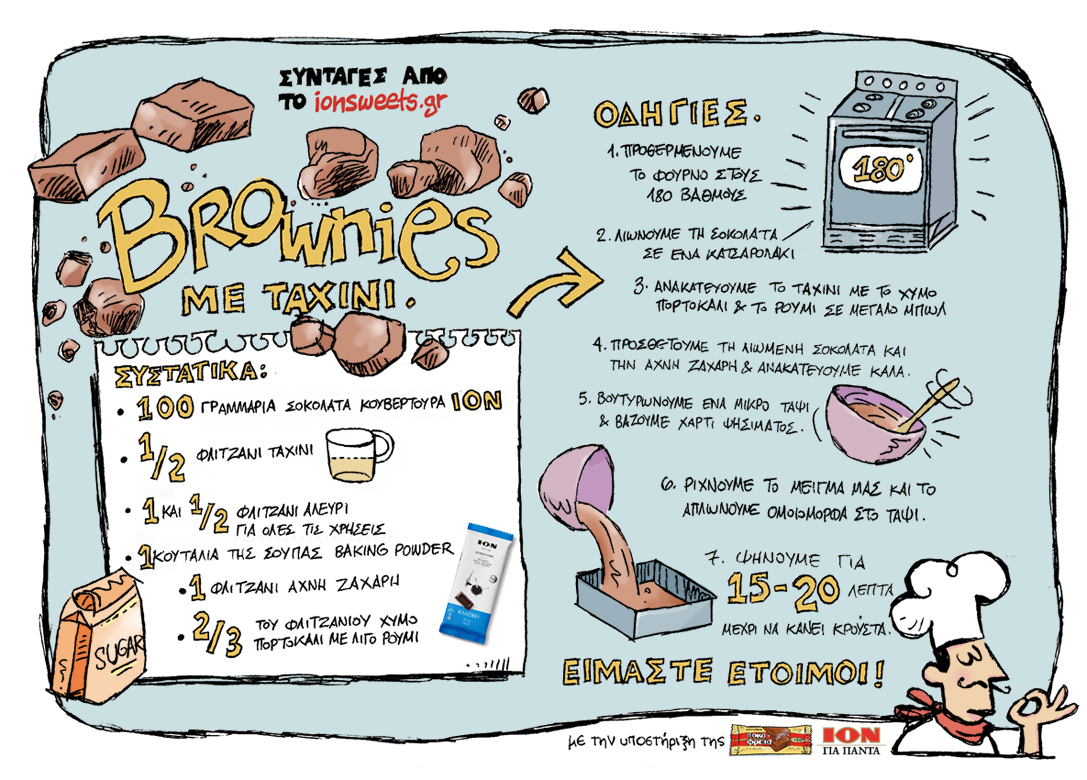 ΣΥΝΤΑΓΕΣ ΑΠΟ
ΤΟ ionsweets.gr
BROwnies
ΜΕ ΤΑΧΙΝΙ.
ΣΥΣΤΑΤΙΚΑ:
• 100 ΓΡΑΜΜΑΡΙΑ ΣΟΚΟΛΑΤΑ ΚΟΥΒΕΡΤΟΥΡΑ ΙΟΝ
• 1/2 ΦΛΙΤΖΑΝΙ ΤΑΧΙΝΙ
• 1 ΚΑΙ 1/2 ΦΛΙΤΖΑΝΙ ΑΛΕΥΡΙ
ΓΙΑ ΟΛΕΣ ΤΙΣ ΧΡΗΣΕΙΣ
• 1 ΚΟΥΤΑΛΙΑ ΤΗΣ ΣΟΥΠΑΣ BAKING POWDER
• 1 ΦΛΙΤΖΑΝΙ ΑΧΝΗ ΖΑΧΑΡΗ
• 2/3 ΤΟΥ ΦΛΙΤΖΑΝΙΟΥ ΧΥΜΟ
ΠΟΡΤΟΚΑΛΙ ΜΕ ΛΙΓΟ ΡΟΥΜΙ
SUGAR
ΙΟΝ
ΚΛΑΣΙΚΗ
ΟΔΗΓΙΕΣ.
1. ΠΡΟΘΕΡΜΕΝΟΥΜΕ
ΤΟ ΦΟΥΡΝΟ ΣΤΟΥΣ
180 ΒΑΘΜΟΥΣ
180°
2. ΛΙΩΝΟΥΜΕ ΤΗ ΣΟΚΟΛΑΤΑ
ΣΕ ΕΝΑ ΚΑΤΣΑΡΟΛΑΚΙ
3. ΑΝΑΚΑΤΕΥΟΥΜΕ ΤΟ ΤΑΧΙΝΙ ΜΕ ΤΟ ΧΥΜΟ
ΠΟΡΤΟΚΑΛΙ & ΤΟ ΡΟΥΜΙ ΣΕ ΜΕΓΑΛΟ ΜΠΩΛ
4. ΠΡΟΣΘΕΤΟΥΜΕ ΤΗ ΛΙΩΜΕΝΗ ΣΟΚΟΛΑΤΑ ΚΑΙ
ΤΗΝ ΑΧΝΗ ΖΑΧΑΡΗ & ΑΝΑΚΑΤΕΥΟΥΜΕ ΚΑΛΑ.
5. ΒΟΥΤΥΡΩΝΟΥΜΕ ΕΝΑ ΜΙΚΡΟ ΤΑΨΙ
& ΒΑΖΟΥΜΕ ΧΑΡΤΙ ΨΗΣΙΜΑΤΟΣ.
6. ΡΙΧΝΟΥΜΕ ΤΟ ΜΕΙΓΜΑ ΜΑΣ ΚΑΙ ΤΟ
ΑΠΛΩΝΟΥΜΕ ΟΜΟΙΟΜΟΡΦΑ ΣΤΟ ΤΑΨΙ.
7. ΨΗΝΟΥΜΕ ΓΙΑ
15-20 ΛΕΠΤΑ
ΜΕΧΡΙ ΝΑ ΚΑΝΕΙ ΚΡΟΥΣΤΑ.
ΕΙΜΑΣΤΕ ΕΤΟΙΜΟΙ!
με την υποστήριξη της
ΙΟΝ
ΓΙΑ ΠΑΝΤΑ